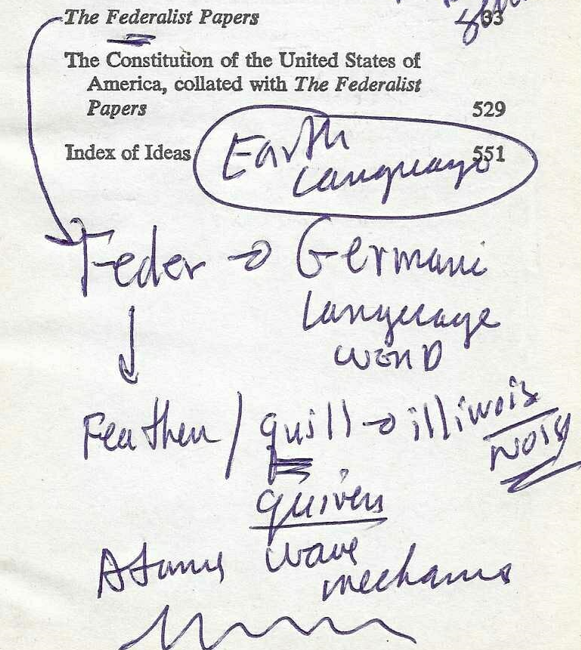 The Federalist Papers 33
The Constitution of the United States of
America, collated with The Federalist
Papers 529
Index of Ideas 551
Earth
Language
Feder → Germanic
Language
word
Feather / quill → illinois
nois
quivers
Atoms wave
mechanics